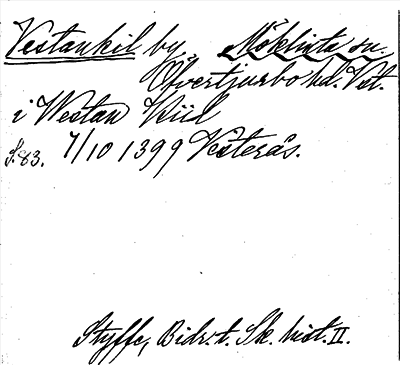 Vestankil by, Möklinta sn.
Öfvertjurbo hd. Vst.
i Westan Kiil
S. 83. 7/10 1399 Vesterås.
Styffe, Bidr. t. Sk. hist. II.